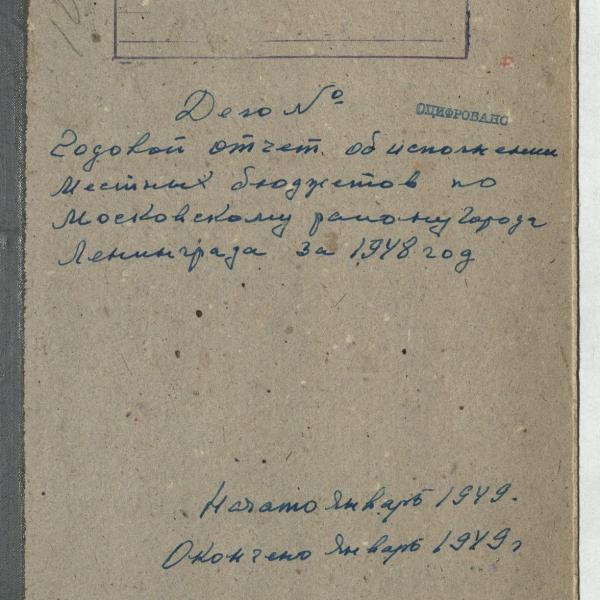 Дело №
ОЦИФРОВАНО
Годовой отчет об исполнении
местных бюджетов по
Московскому району города
Ленинграда за 1948 год
Начато январь 1949.
Окончено январь 1949 г